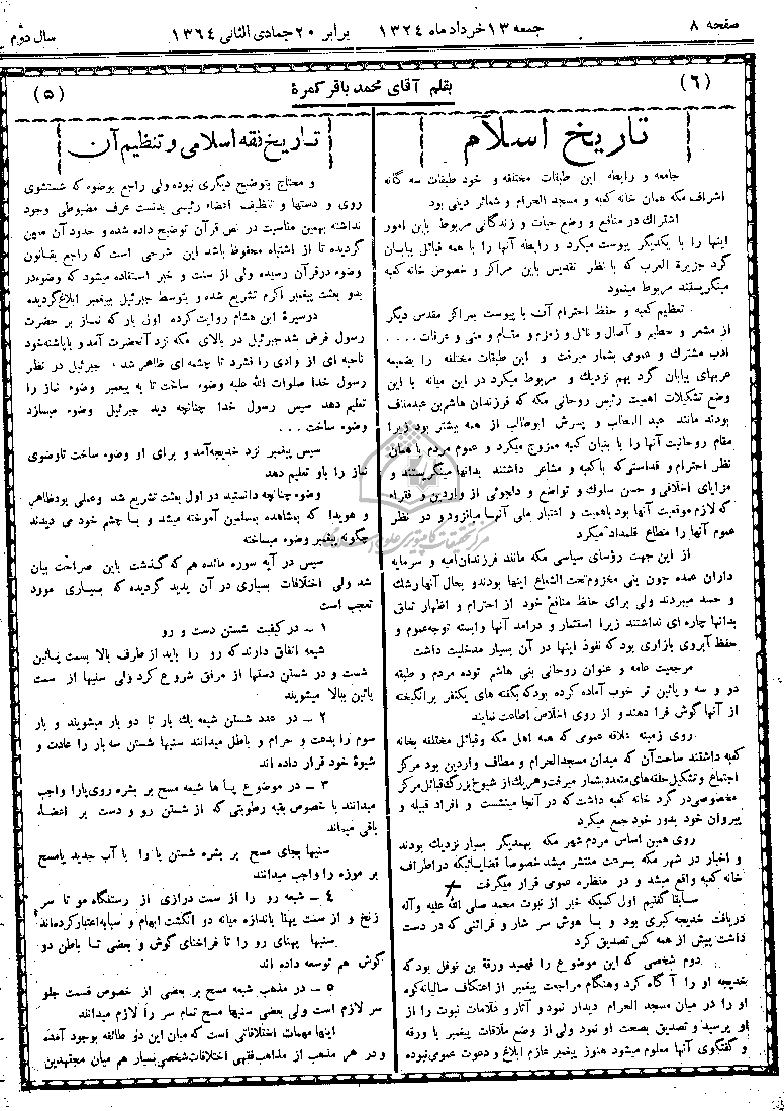 صفحه ۸
جمعه ۱۳ خرداد ماه ۱۳۲۴
برابر ۲۰ جمادی الثانی ۱۳۶۴
سال دوم
(۶)
بقلم آقای محمد باقر کمرهٔ
(۵)
تاریخ اسلام
جامعه و رابطه این طبقات مختلفه و خود طبقات سه گانه
اشراف مکه همان خانه کعبه و مسجد الحرام و شعائر دینی بود
اشتراك در منافع و وضع حیات و زندگانی مربوط باین امور
اینها را با یکدیگر پیوست میکرد و رابطه آنها را با همه قبائل بیابان
گرد جزیرة العرب که با نظر تقدیس باین مراکز و خصوص خانه کعبه
مینگریستند مربوط مینمود
تعظیم کعبه و حفظ احترام آن با پیوست بمراکز مقدس دیگر
از مشعر و حطیم و آصال و نائل و زمزم و مقام و منی و عرفات . . . .
ادب مشترك و عمومی بشمار میرفت و این طبقات مختلفه را بضمیمه
عربهای بیابان گرد بهم نزدیك و مربوط میکرد در این میانه با این
وضع تشکیلات اهمیت رئیس روحانی مکه که فرزندان هاشم بن عبدمناف
بودند مانند عبد المطلب و پسرش ابوطالب از همه بیشتر بود زیرا
مقام روحانیت آنها را با بنیان کعبه ممزوج میکرد و عموم مردم با همان
نظر احترام و قداستی که با کعبه و مشاعر داشتند بدانها مینگریستند و
مزایای اخلاقی و حسن سلوك و تواضع و دلجوئی از واردین و فقراء
که لازم موقعیت آنها بود باهمیت و اعتبار ملی آنها میافزود و در نظر
عموم آنها را مطاع قلمداد میکرد
از این جهت رؤسای سیاسی مکه مانند فرزندان امیه و سرمایه
داران عمده چون بنی مخزوم تحت الشعاع اینها بودند و بحال آنها رشك
و حسد میبردند ولی برای حفظ منافع خود از احترام و اظهار تملق
بدانها چاره ای نداشتند زیرا استثمار و درامد آنها وابسته توجه عموم و
حفظ آبروی بازاری بود که نفوذ اینها در آن بسیار مدخلیت داشت
مرجعیت عامه و عنوان روحانی بنی هاشم توده مردم و طبقه
دو و سه و پائین تر خوب آماده کرده بود که بگفته های یکنفر برانگیخته
از آنها گوش فرا دهند و از روی اخلاص اطاعت نمایند
روی زمینه علاقه عمومی که همه اهل مکه و قبائل مختلفه بخانه
کعبه داشتند ساحت آن که میدان مسجد الحرام و مطاف واردین بود مرکز
اجتماع و تشکیل حلقه های متعدد بشمار میرفت و هریك از شیوخ بزرگ قبائل مرکز
مخصوصی در گرد خانه کعبه داشت که در آنجا مینشست و افراد قبیله و
پیروان خود بدور خود جمع میکرد
روی همین اساس مردم شهر مکه بهمدیگر بسیار نزدیك بودند
و اخبار در شهر مکه بسرعت منتشر میشد خصوصا قضایائیکه در اطراف
خانه کعبه واقع میشد و در منظره عمومی قرار میگرفت
سابقا گفتیم اول کسیکه خبر از نبوت محمد صلی الله علیه وآله
دریافت خدیجه کبری بود و با هوش سر شار و قرائنی که در دست
داشت پیش از همه کس تصدیق کرد
دوم شخصی که این موضوع را فهمید ورقة بن نوفل بود که
خدیجه او را آگاه کرد وهنگام مراجعت پیغمبر از اعتکاف سالیانه کوه
او را در میان مسجد الحرام دیدار نمود و آثار و علامات نبوت را از
او پرسید و تصدیق بصحت او نمود ولی از وضع ملاقات پیغمبر با ورقة
و گفتگوی آنها معلوم میشود هنوز پیغمبر عازم ابلاغ و دعوت عمومی نبوده
تاریخ فقه اسلامی و تنظیم آن
و محتاج بتوضیح دیگری نبوده ولی راجع بوضوء که شستشوی
روی و دستها و تنظیف اعضاء رئیسی بدنست عرف مضبوطی وجود
نداشته بهمین مناسبت در نص قرآن توضیح داده شده و حدود آن معین
گردیده تا از اشتباه محفوظ باشد این شرحی است که راجع بقانون
وضوء در قرآن رسیده ولی از سنت و خبر استفاده میشود که وضوء در
بدو بعثت پیغمبر اکرم تشریع شده و بتوسط جبرئیل بپیغمبر ابلاغ گردیده
در سیرهٔ ابن هشام روایت کرده اول بار که نماز بر حضرت
رسول فرض شد جبرئیل در بالای مکه نزد آنحضرت آمد و با پاشته خود
ناحیه ای از وادی را فشرد تا چشمه ای ظاهر شد ، جبرئیل در نظر
رسول خدا صلوات الله علیه وضوء ساخت تا به پیغمبر وضوء نماز را
تعلیم دهد سپس رسول خدا چنانچه دید جبرئیل وضوء میسازد
وضوء ساخت . . .
سپس پیغمبر نزد خدیجه آمد و برای او وضوء ساخت تا وضوی
نماز را باو تعلیم دهد
وضوء چنانچه دانستید در اول بعثت تشریع شد وعملی بود ظاهر
و هویدا که بمشاهده بمسلمین آموخته میشد و با چشم خود می دیدند
چگونه پیغمبر وضوء میساخته
سپس در آیه سوره مائده هم که گذشت باین صراحت بیان
شد ولی اختلافات بسیاری در آن پدید گردیده که بسیاری مورد
تعجب است
۱ ـ در کیفیت شستن دست و رو
شیعه اتفاق دارند که رو را باید از طرف بالا بسمت پائین
شست و در شستن دستها از مرفق شروع کرد ولی سنیها از سمت
پائین ببالا میشویند
۲ ـ در عدد شستن شیعه یك بار تا دو بار میشویند و بار
سوم را بدعت و حرام و باطل میدانند سنیها شستن سه بار را عادت و
شیوهٔ خود قرار داده اند
۳ ـ در موضوع پاها شیعه مسح بر بشره روی پا را واجب
میدانند با خصوص بقیه رطوبتی که از شستن رو و دست بر اعضاء
باقی میماند
سنیها بجای مسح بر بشره شستن پا را با آب جدید یا مسح
بر موزه را واجب میدانند
۴ ـ شیعه رو را از سمت درازی از رستنگاه مو تا سر
زنخ و از سمت پهنا باندازه میانه دو انگشت ابهام و سبابه اعتبار کرده اند
سنیها پهنای رو را تا فراخنای گوش و بعضی تا باطن دو
گوش هم توسعه داده اند
۵ ـ در مذهب شیعه مسح بر بعضی از خصوص قسمت جلو
سر لازم است ولی بعضی سنیها مسح تمام سر را لازم میدانند
اینها مهمات اختلافاتی است که میان این دو طائفه بوجود آمده
و در هر مذهب از مذاهب فقهی اختلافات شخصی بسیار هم میان معتقدین